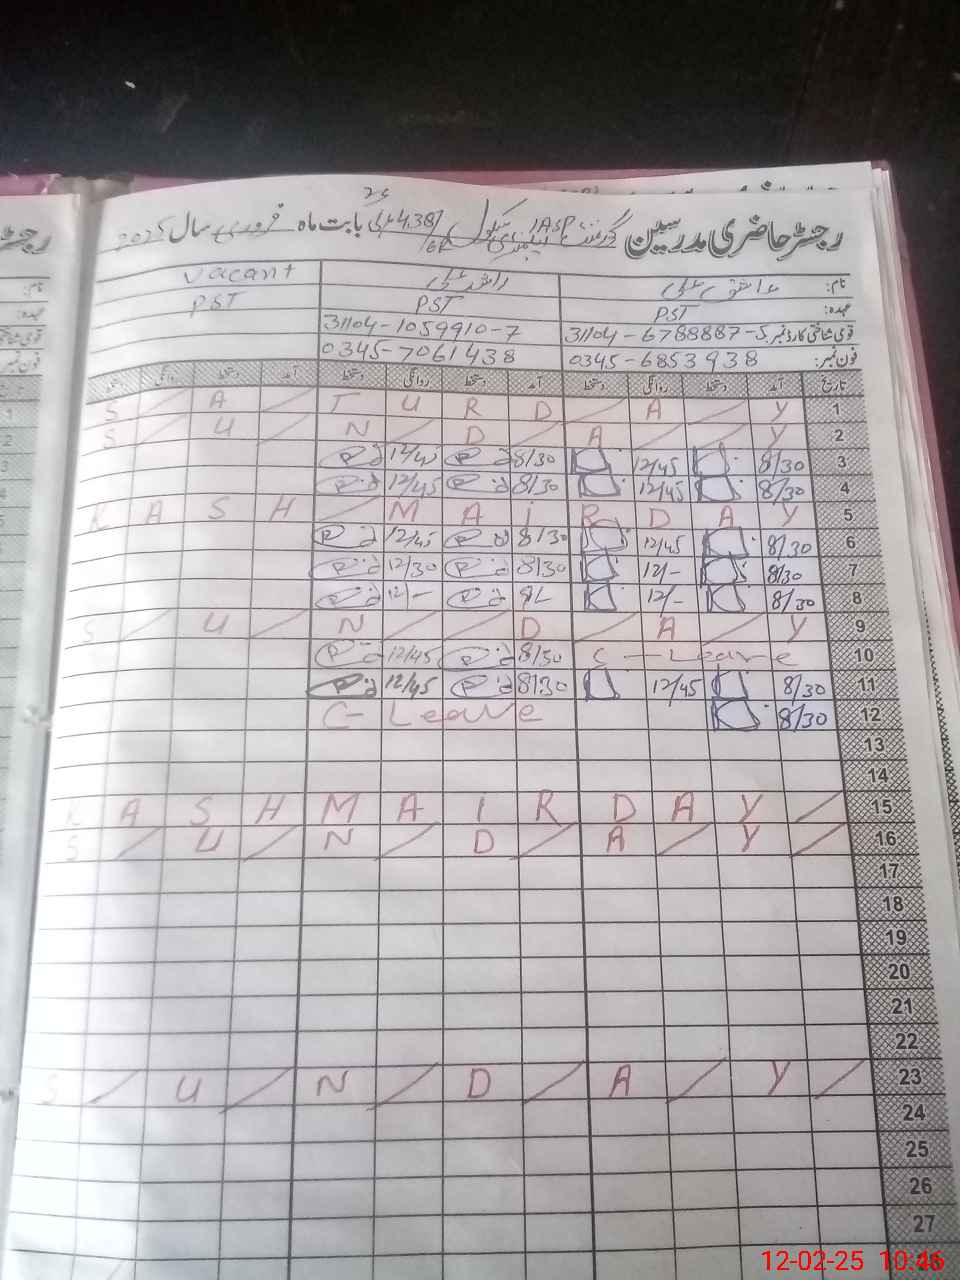 رجسٹر حاضری مدرسین گورنمنٹ سکول بابت ماہ فروری سال 2025
نام: عاشق علی راشد علی Vacant
عہدہ: PST PST PST
قومی شناختی کارڈ نمبر: 31104-6788887-5 31104-1059910-7
فون نمبر: 0345-6853938 0345-7061438
تاریخ آمد دستخط روانگی دستخط آمد دستخط روانگی دستخط آمد دستخط روانگی دستخط
1 S A T U R D A Y
2 S U N D A Y
3 8/30 12/45 8/30 12/45
4 8/30 12/45 8/30 12/45
5 K A S H M A i R D A Y
6 8/30 12/45 8/30 12/45
7 8/30 12/- 8/30 12/30
8 8/30 12/- 12/-
9 S U N D A Y
10 C-Leave 8/30 12/45
11 8/30 12/45 8/30 12/45
12 8/30 C-Leave
13
14
15 K A S H M A I R D A Y
16 S U N D A Y
17
18
19
20
21
22
23 S U N D A Y
24
25
26
27
12-02-25 10:46